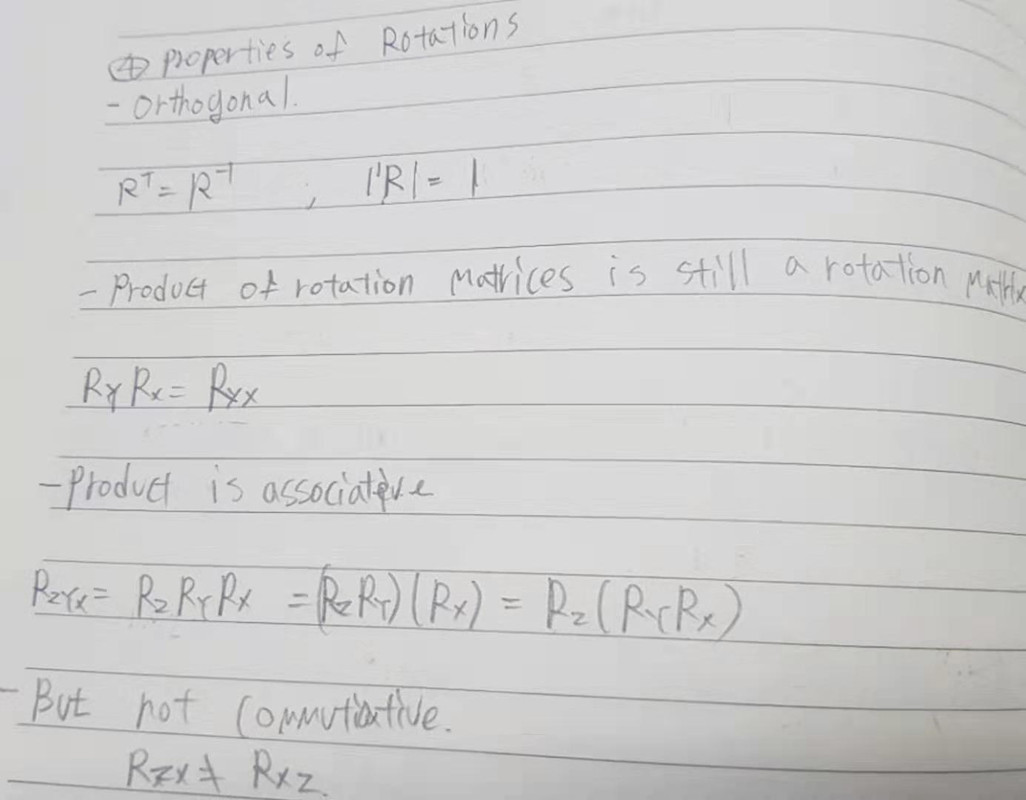 ④ Properties of Rotations
- Orthogonal.
Rᵀ = R⁻¹ , |R| = 1
- Product of rotation Matrices is still a rotation Matrix
R_Y R_X = R_YX
- Product is associative
R_ZYX = R_Z R_Y R_X = (R_Z R_Y)(R_X) = R_Z(R_Y R_X)
- But not Commutative.
R_ZX ≠ R_XZ.